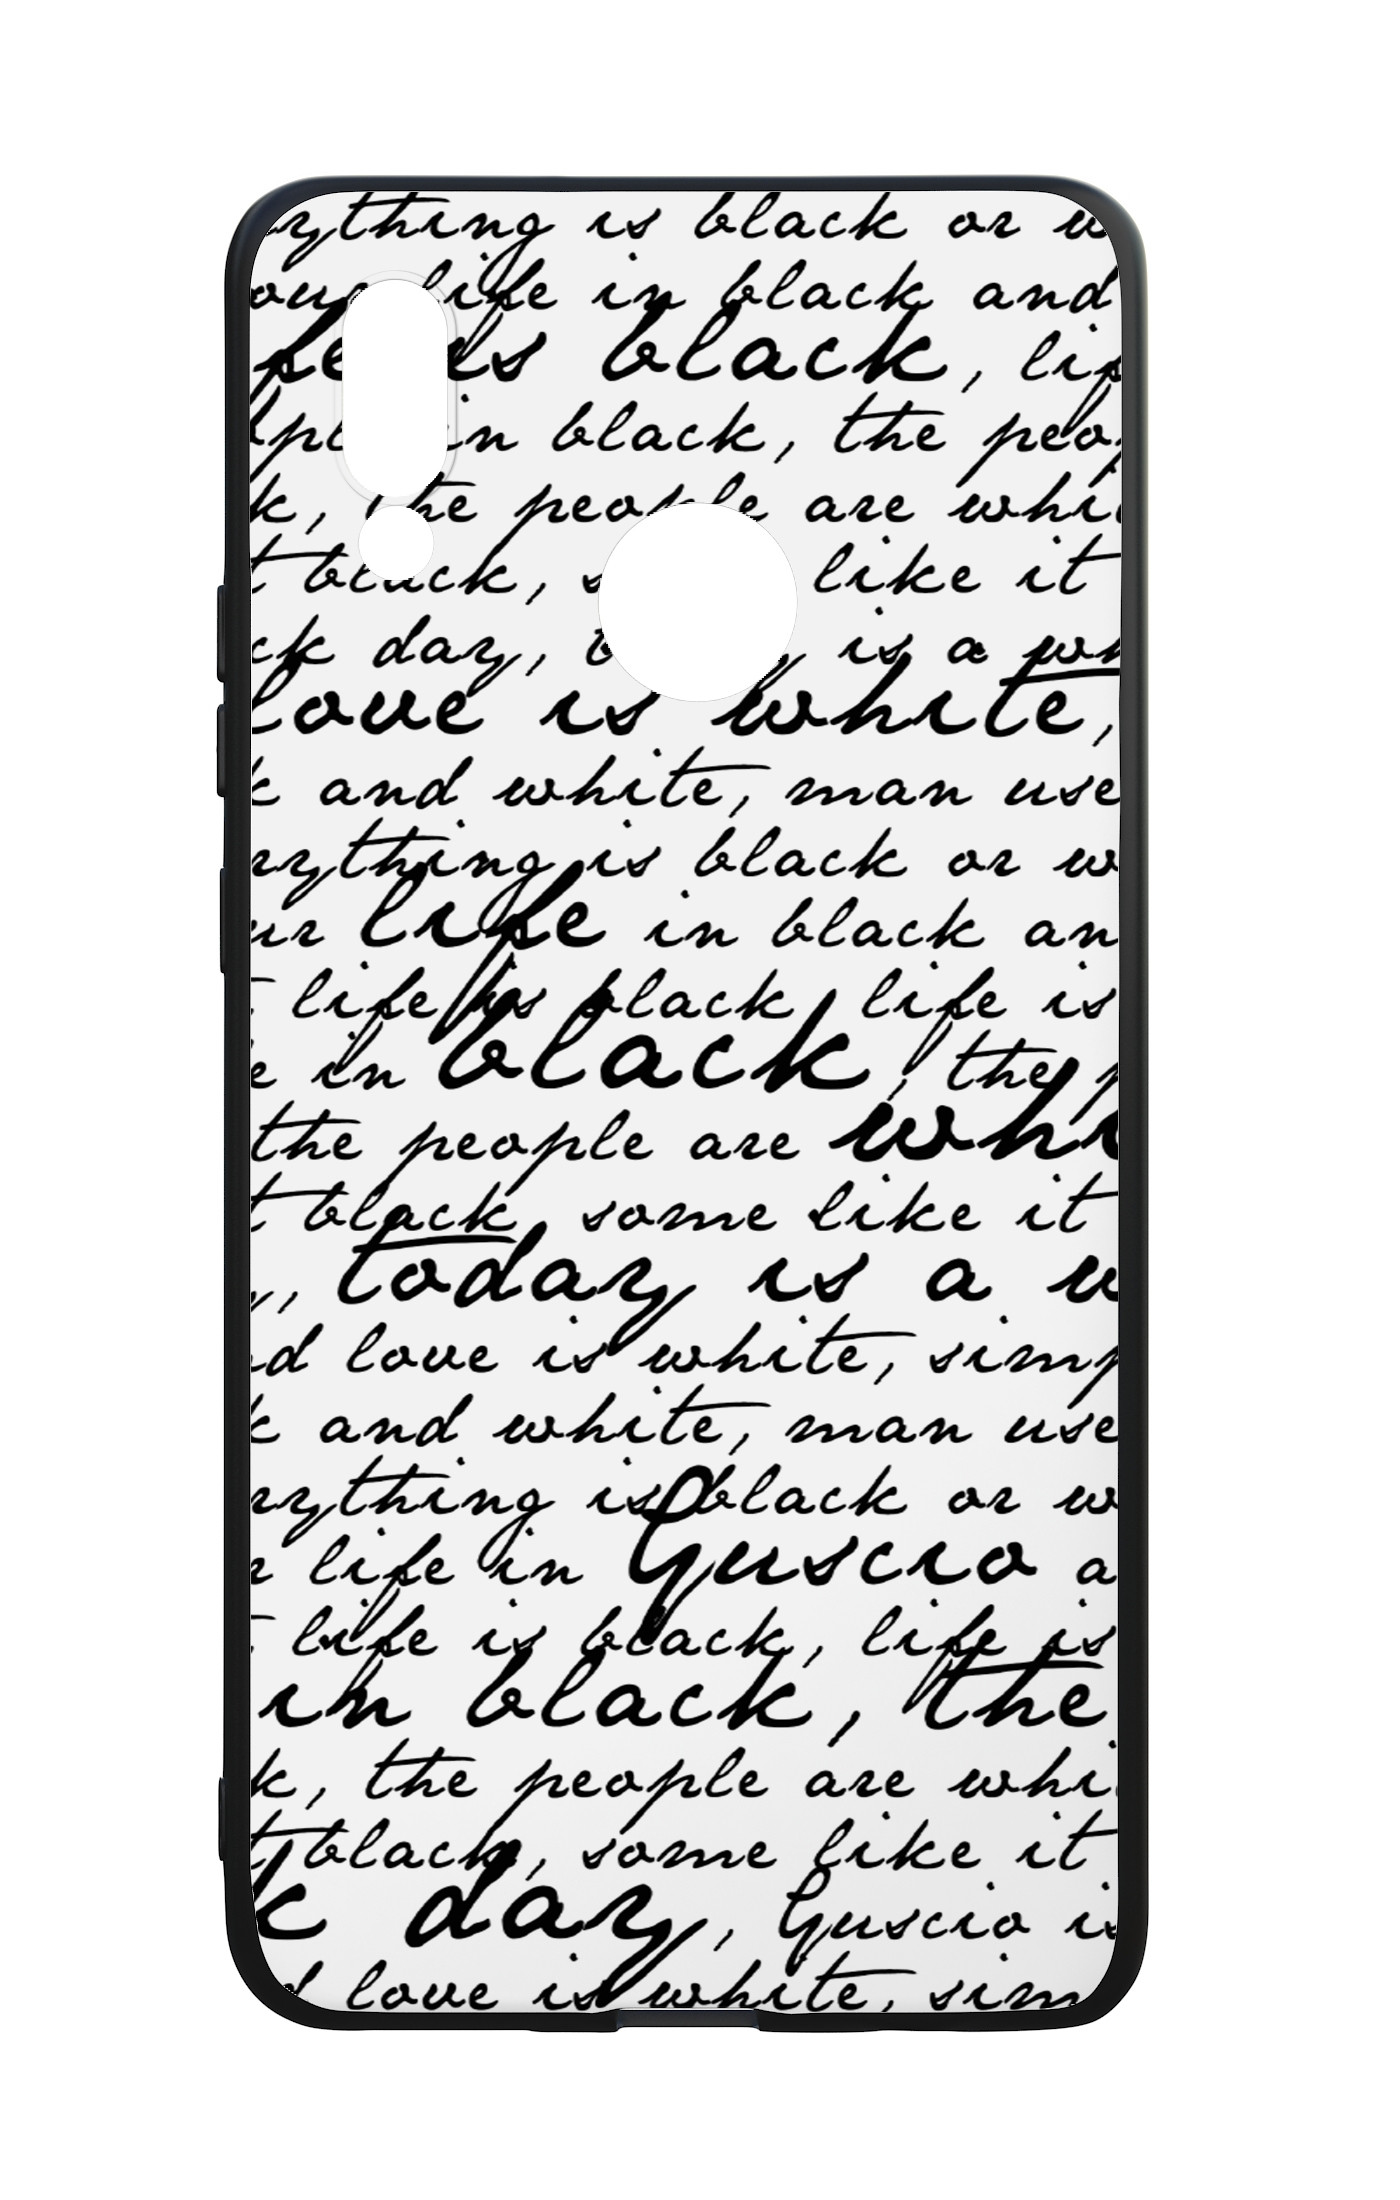 rything is black or w
our life in black and
fe is black, lif
in black, the peop
k, the people are whi
t black, s like it
ck day, t is a wh
love is white,
k and white, man use
rything is black or w
ur life in black an
life is black life is
e in black, the p
the people are whi
t black, some like it
y, today is a w
nd love is white, simp
k and white, man use
rything is black or w
r life in Guscio a
life is black, life is
in black, the
k, the people are whi
t black, some like it
k day, Guscio is
d love is white, sim